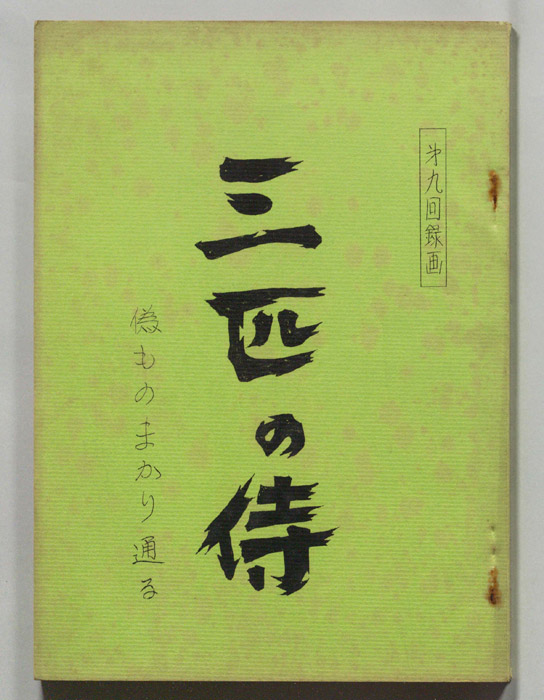 第九回録画
三匹の侍
偽ものまかり通る